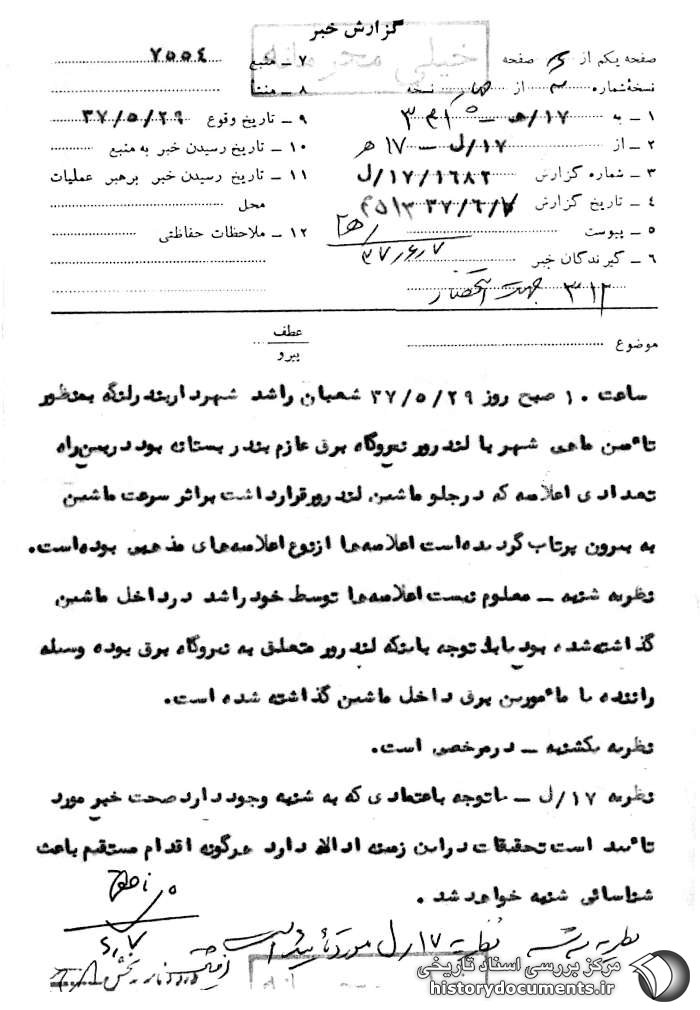 گزارش خبر
خیلی محرمانه
صفحه یکم از صفحه
نسخه شماره از چهار نسخه
۱ ـ به ۱۷/هـ ـ
۲ ـ از ۱۷/ل ـ ۱۷ هـ
۳ ـ شماره گزارش ۱۷/۱۶۸۲/ل
۴ ـ تاریخ گزارش ۳۷/۶/۷
۵ ـ پیوست
۳۷/۶/۷
۶ ـ گیرندگان خبر
۳۱۲ جهت استحضار
۷ ـ منبع ۷۵۵۴
۸ ـ منشأ
۹ ـ تاریخ وقوع ۳۷/۵/۲۹
۱۰ ـ تاریخ رسیدن خبر به منبع
۱۱ ـ تاریخ رسیدن خبر برهبر عملیات
محل
۱۲ ـ ملاحظات حفاظتی
موضوع
عطف
پیرو
ساعت ۱۰ صبح روز ۳۷/۵/۲۹ شعبان راشد شهردار بندرلنگه بمنظور
تأمین ماهی شهر با لندرور نیروگاه برق عازم بندر بستانه بود در بین راه
تعدادی اعلامیه که در جلو ماشین لندرور قرار داشت براثر سرعت ماشین
به بیرون پرتاب گردیده است اعلامیه‌ها از نوع اعلامیه‌های مذهبی بوده است.
نظریه شنبه ـ معلوم نیست اعلامیه‌ها توسط خود راشد در داخل ماشین
گذاشته شده بود یا با توجه باینکه لندرور متعلق به نیروگاه برق بوده وسیله
راننده یا مأمورین برق داخل ماشین گذاشته شده است.
نظریه یکشنبه ـ در مرخصی است.
نظریه ۱۷/ل ـ با توجه باعتمادی که به شنبه وجود دارد صحت خبر مورد
تائید است تحقیقات در این زمینه ادامه دارد هرگونه اقدام مستقیم باعث
شناسائی شنبه خواهد شد.
نظریه نظریه ۱۷/ل مورد تأیید است
۶/۷
مرکز بررسی اسناد تاریخی
historydocuments.ir